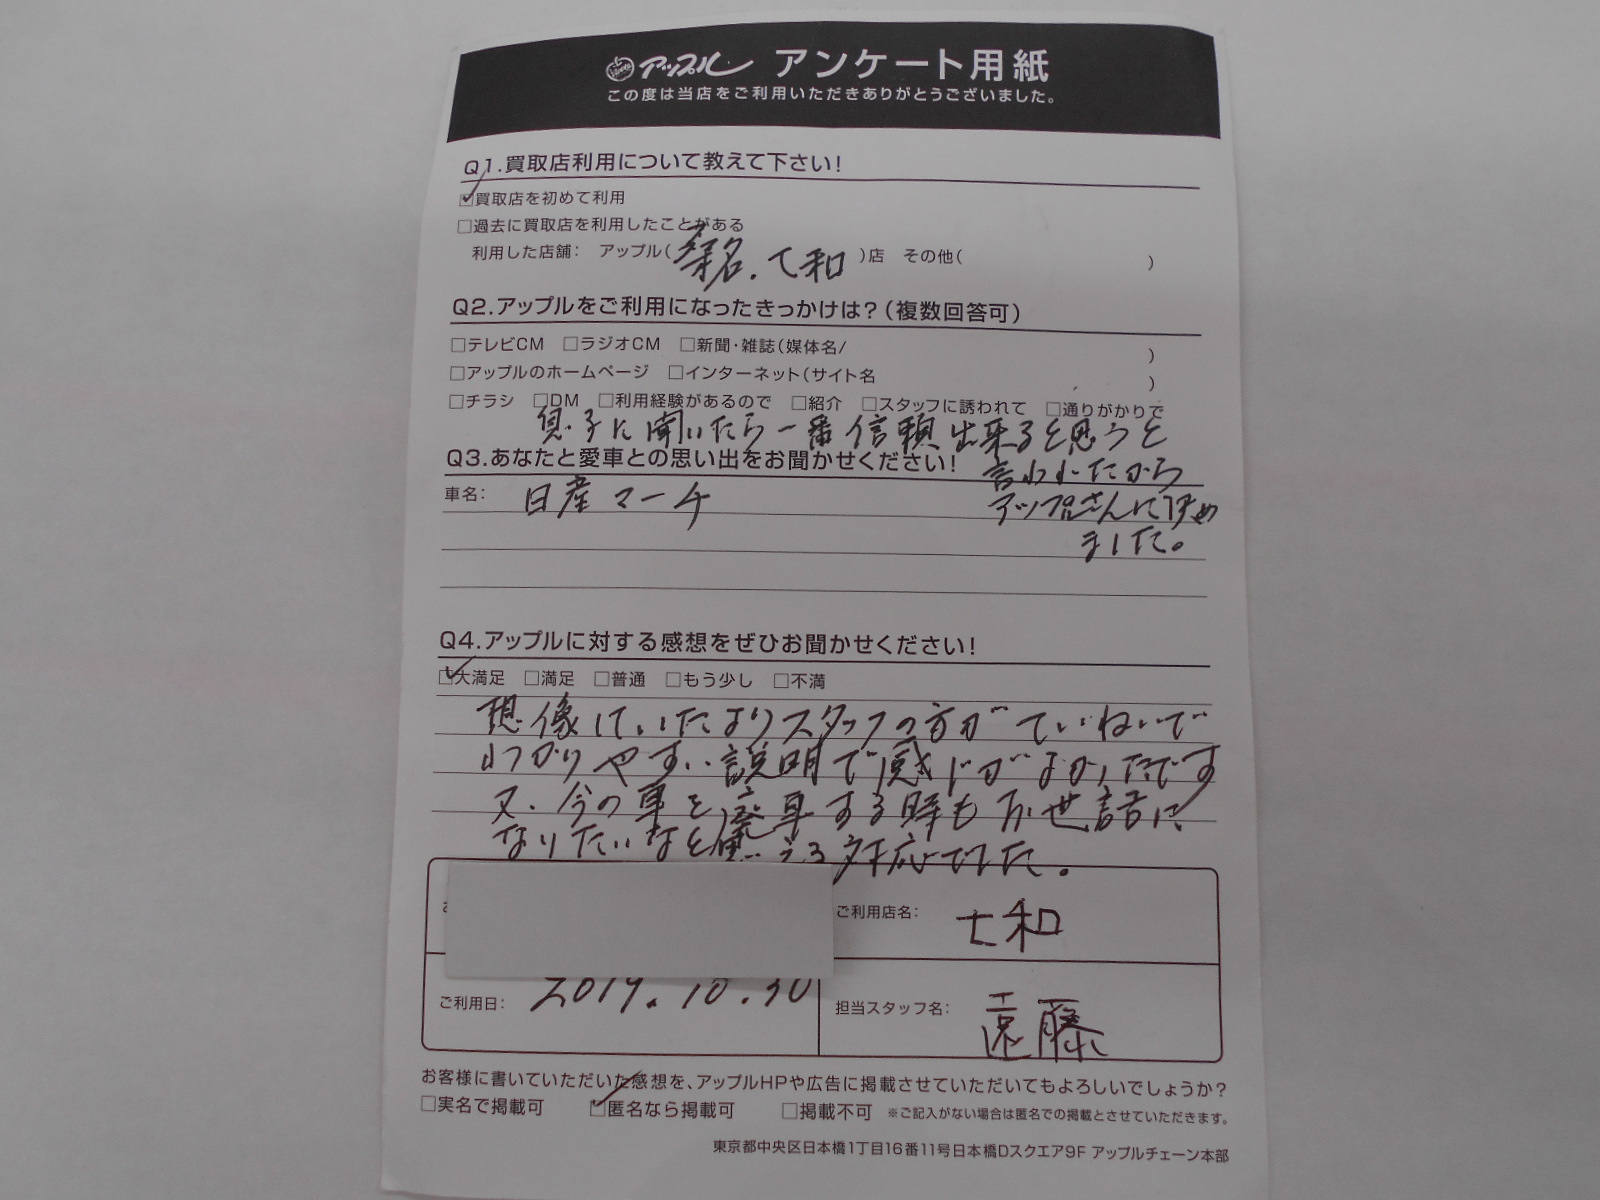 アップル アンケート用紙
この度は当店をご利用いただきありがとうございました。
Q1.買取店利用について教えて下さい!
☑買取店を初めて利用
□過去に買取店を利用したことがある
利用した店舗: アップル(桑名.七和)店 その他( )
Q2.アップルをご利用になったきっかけは?(複数回答可)
□テレビCM □ラジオCM □新聞・雑誌(媒体名/ )
□アップルのホームページ □インターネット(サイト名 )
□チラシ □DM □利用経験があるので □紹介 □スタッフに誘われて □通りがかりで
息子に聞いたら一番信頼出来ると思うと
言われたから
アップルさんに決め
ました。
Q3.あなたと愛車との思い出をお聞かせください!
車名: 日産マーチ
Q4.アップルに対する感想をぜひお聞かせください!
☑大満足 □満足 □普通 □もう少し □不満
想像していたよりスタッフの方がていねいで
わかりやすい説明で感じがよかったです
又、今の車を廃車する時もお世話に
なりたいなと思う対応でした。
ご利用店名: 七和
ご利用日: 2019.10.30
担当スタッフ名: 遠藤
お客様に書いていただいた感想を、アップルHPや広告に掲載させていただいてもよろしいでしょうか?
□実名で掲載可 ☑匿名なら掲載可 □掲載不可 ※ご記入がない場合は匿名での掲載とさせていただきます。
東京都中央区日本橋1丁目16番11号日本橋Dスクエア9F アップルチェーン本部